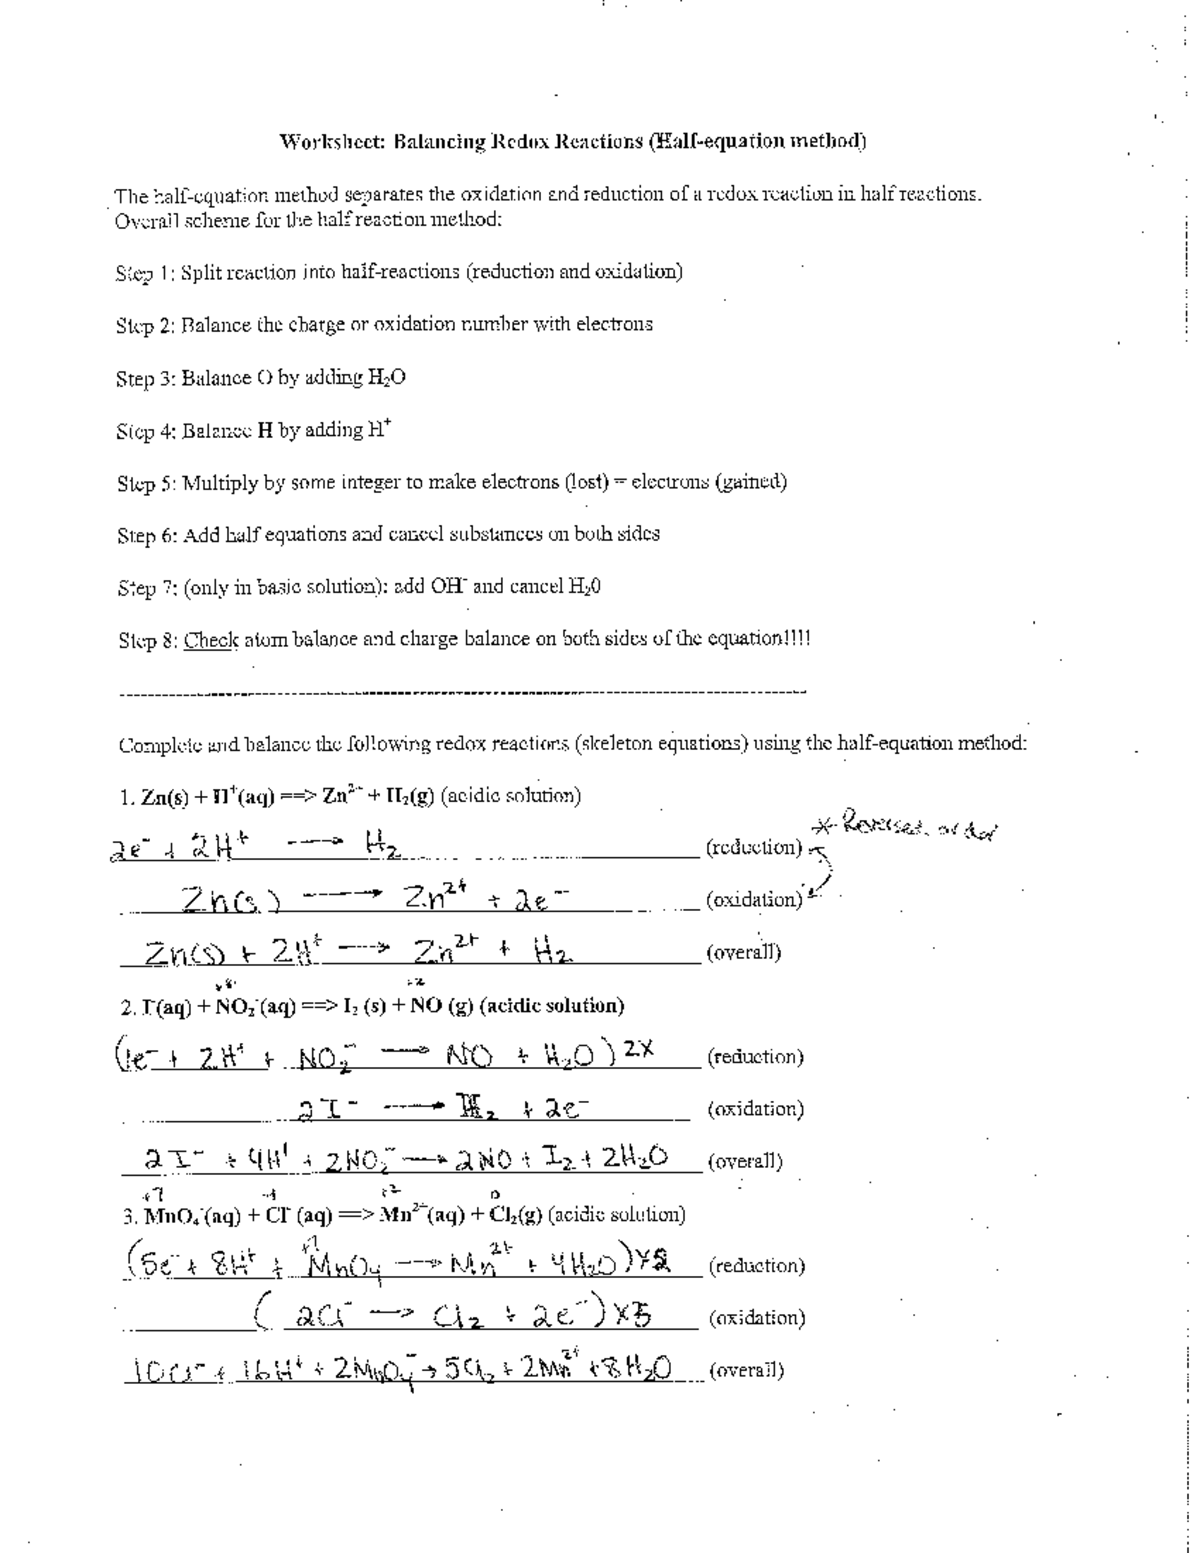 Worksheet: Balancing Redox Reactions (Half-equation method)
The half-equation method separates the oxidation and reduction of a redox reaction in half reactions.
Overall scheme for the half reaction method:
Step 1: Split reaction into half-reactions (reduction and oxidation)
Step 2: Balance the charge or oxidation number with electrons
Step 3: Balance O by adding H₂O
Step 4: Balance H by adding H⁺
Step 5: Multiply by some integer to make electrons (lost) = electrons (gained)
Step 6: Add half equations and cancel substances on both sides
Step 7: (only in basic solution): add OH⁻ and cancel H₂0
Step 8: Check atom balance and charge balance on both sides of the equation!!!!
Complete and balance the following redox reactions (skeleton equations) using the half-equation method:
1. Zn(s) + H⁺(aq) ==> Zn²⁺ + H₂(g) (acidic solution)
* Reversed order
2e⁻ + 2H⁺ ---> H₂ (reduction)
Zn(s) ---> Zn²⁺ + 2e⁻ (oxidation)
Zn(s) + 2H⁺ ---> Zn²⁺ + H₂ (overall)
+2
2. I⁻(aq) + NO₂⁻(aq) ==> I₂ (s) + NO (g) (acidic solution)
(1e⁻ + 2H⁺ + NO₂⁻ ---> NO + H₂O) 2X (reduction)
2I⁻ ---> I₂ + 2e⁻ (oxidation)
2I⁻ + 4H⁺ + 2NO₂⁻ ---> 2NO + I₂ + 2H₂O (overall)
+7 -1 +2 0
3. MnO₄⁻(aq) + Cl⁻ (aq) ==> Mn²⁺(aq) + Cl₂(g) (acidic solution)
(5e⁻ + 8H⁺ + MnO₄ ---> Mn²⁺ + 4H₂O) x2 (reduction)
(2Cl⁻ ---> Cl₂ + 2e⁻) x5 (oxidation)
10Cl⁻ + 16H⁺ + 2MnO₄⁻ → 5Cl₂ + 2Mn²⁺ + 8H₂O (overall)